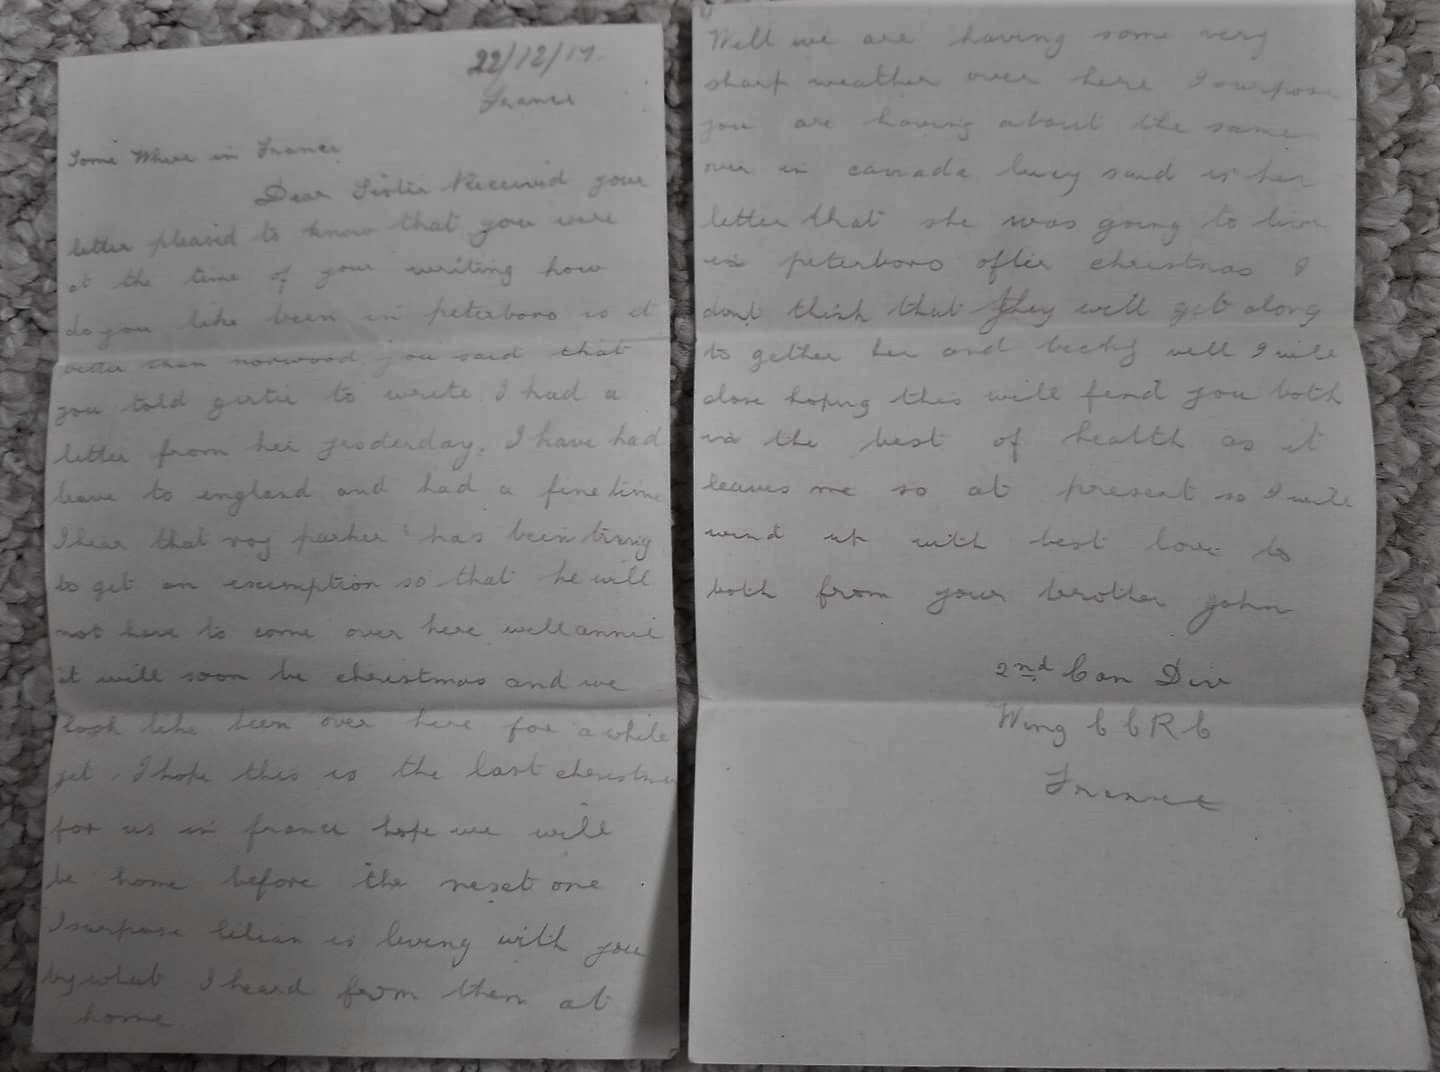 22/12/17.
France
Some Where in France
Dear Sister Received your
letter pleasd to know that you were
at the time of your writing how
do you like been in peterboro is it
better than norwood you said that
you told girtie to write. I had a
letter from her yesderday. I have had
leave to england and had a fine time
I hear that roy parker has been trying
to get an exumption so that he will
not have to come over here well annie
it will soon be christmas and we
look like been over here for a while
yet. I hope this is the last christmas
for us in france hope we will
be home before the nesct one
I surpose lilian is living with you
by what I heard from them at
home.
Well we are having some very
sharp weather over here I surpose
you are having about the same
over in canada lucy said is her
letter that she was going to live
in peterboro after christmas I
dont think that they will get along
to gether her and becky well I will
close hoping this will find you both
in the best of health as it
leaves me so at present so I will
wind up with best love to
both from your brother John
2nd Can Div
Wing C C R C
France